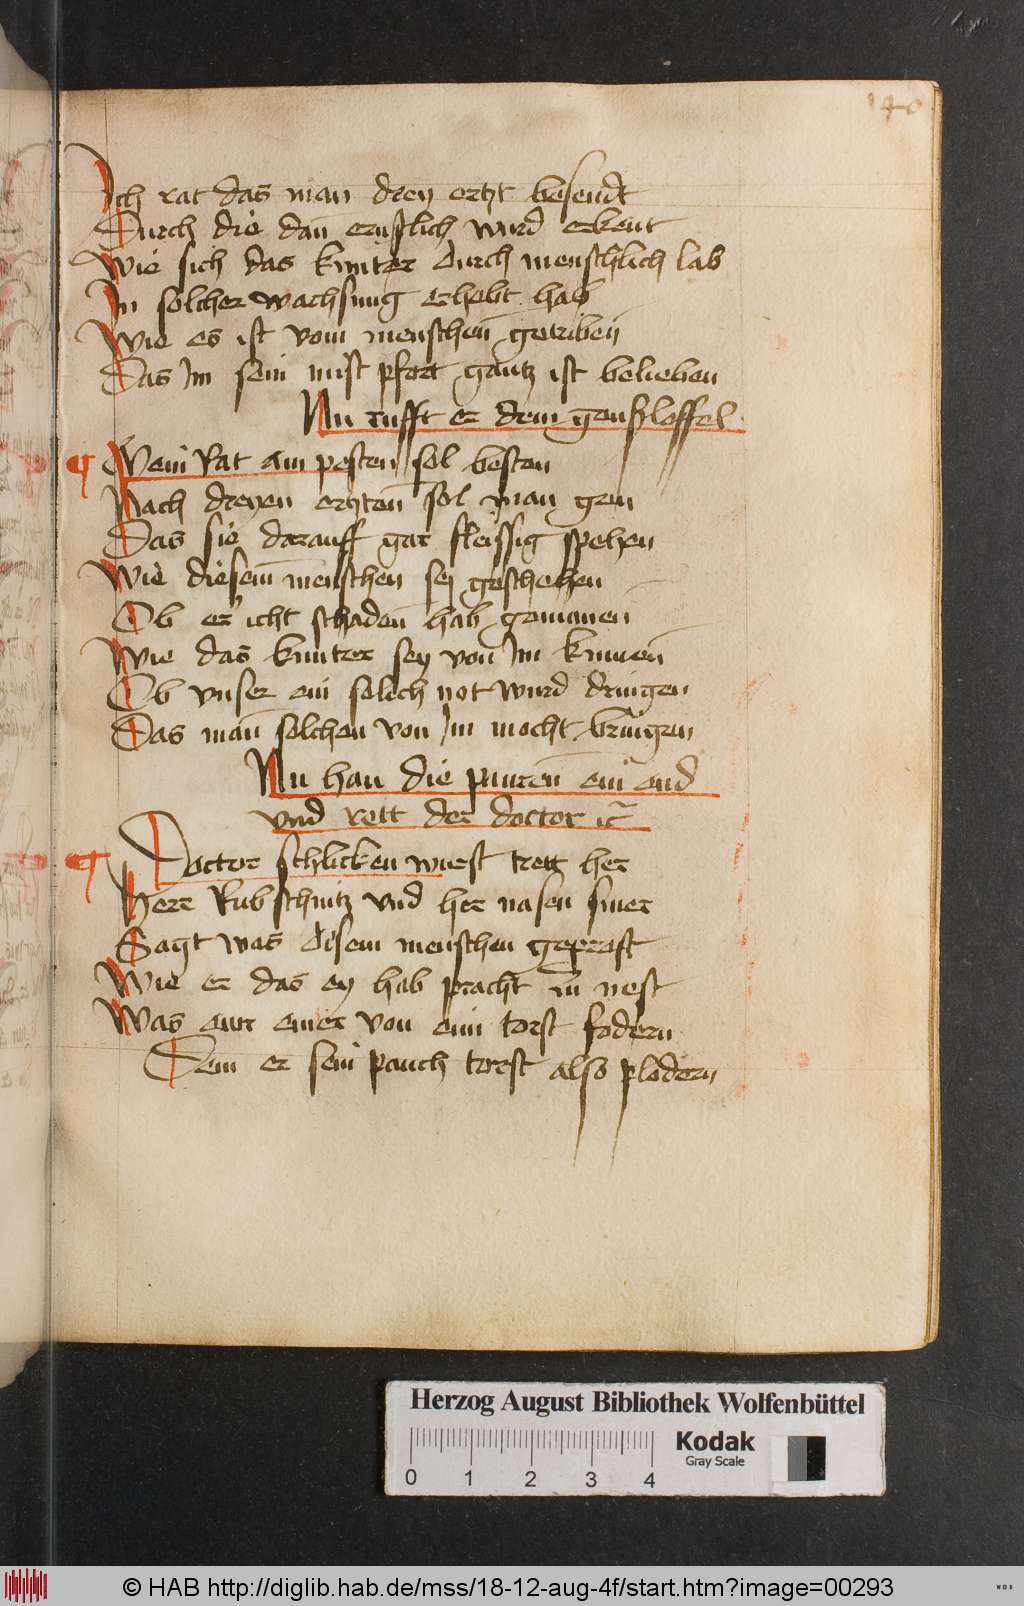 140
Ich rat das man drey ertzt besendt
Durch die dann ernstlich wurd erkent
Wie sich das kunter durch menschlich lab
In solcher wachsung erhebt hab
Wie es ist vom menschen getriben
Das Im sein mist pfort gantz ist belieben
Nu rufft er dem genßloffel
Mein Rat am pesten sol besten
Nach dreyen ertzten sol man gen
Das sie darauff gar fleissig spehen
Wie diesem menschen sey geschehen
Ob er icht schaden hab genumen
Wie das kunter sey von Im kumen
Ob vnser ein solich not wurd dringen
Das man solchen von Im mocht bringen
Nu han die pauren ein end
vnd rett der doctor
Doctor schlicken wurst trett her
Herr Rubschnitz vnd her nasen smer
Sagt was disem menschen geprast
Wie er das ey hab pracht Im nest
Was eur einer von eim torst fodern
Dem er sein pauch torst also plodern
Herzog August Bibliothek Wolfenbüttel
0 1 2 3 4
Kodak
Gray Scale
© HAB http://diglib.hab.de/mss/18-12-aug-4f/start.htm?image=00293